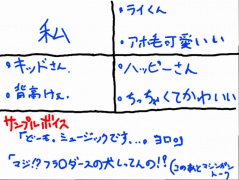 私
・ライくん
・アホ毛可愛いい
・キッドさん
・背高けぇ
・ハッピーさん
・ちっちゃくてかわいい
サンプルボイス
「どーも。ミュージックです...。ヨロ」
「マジ!?フラロダースの犬しってんの!?(このあとマシンガントーク